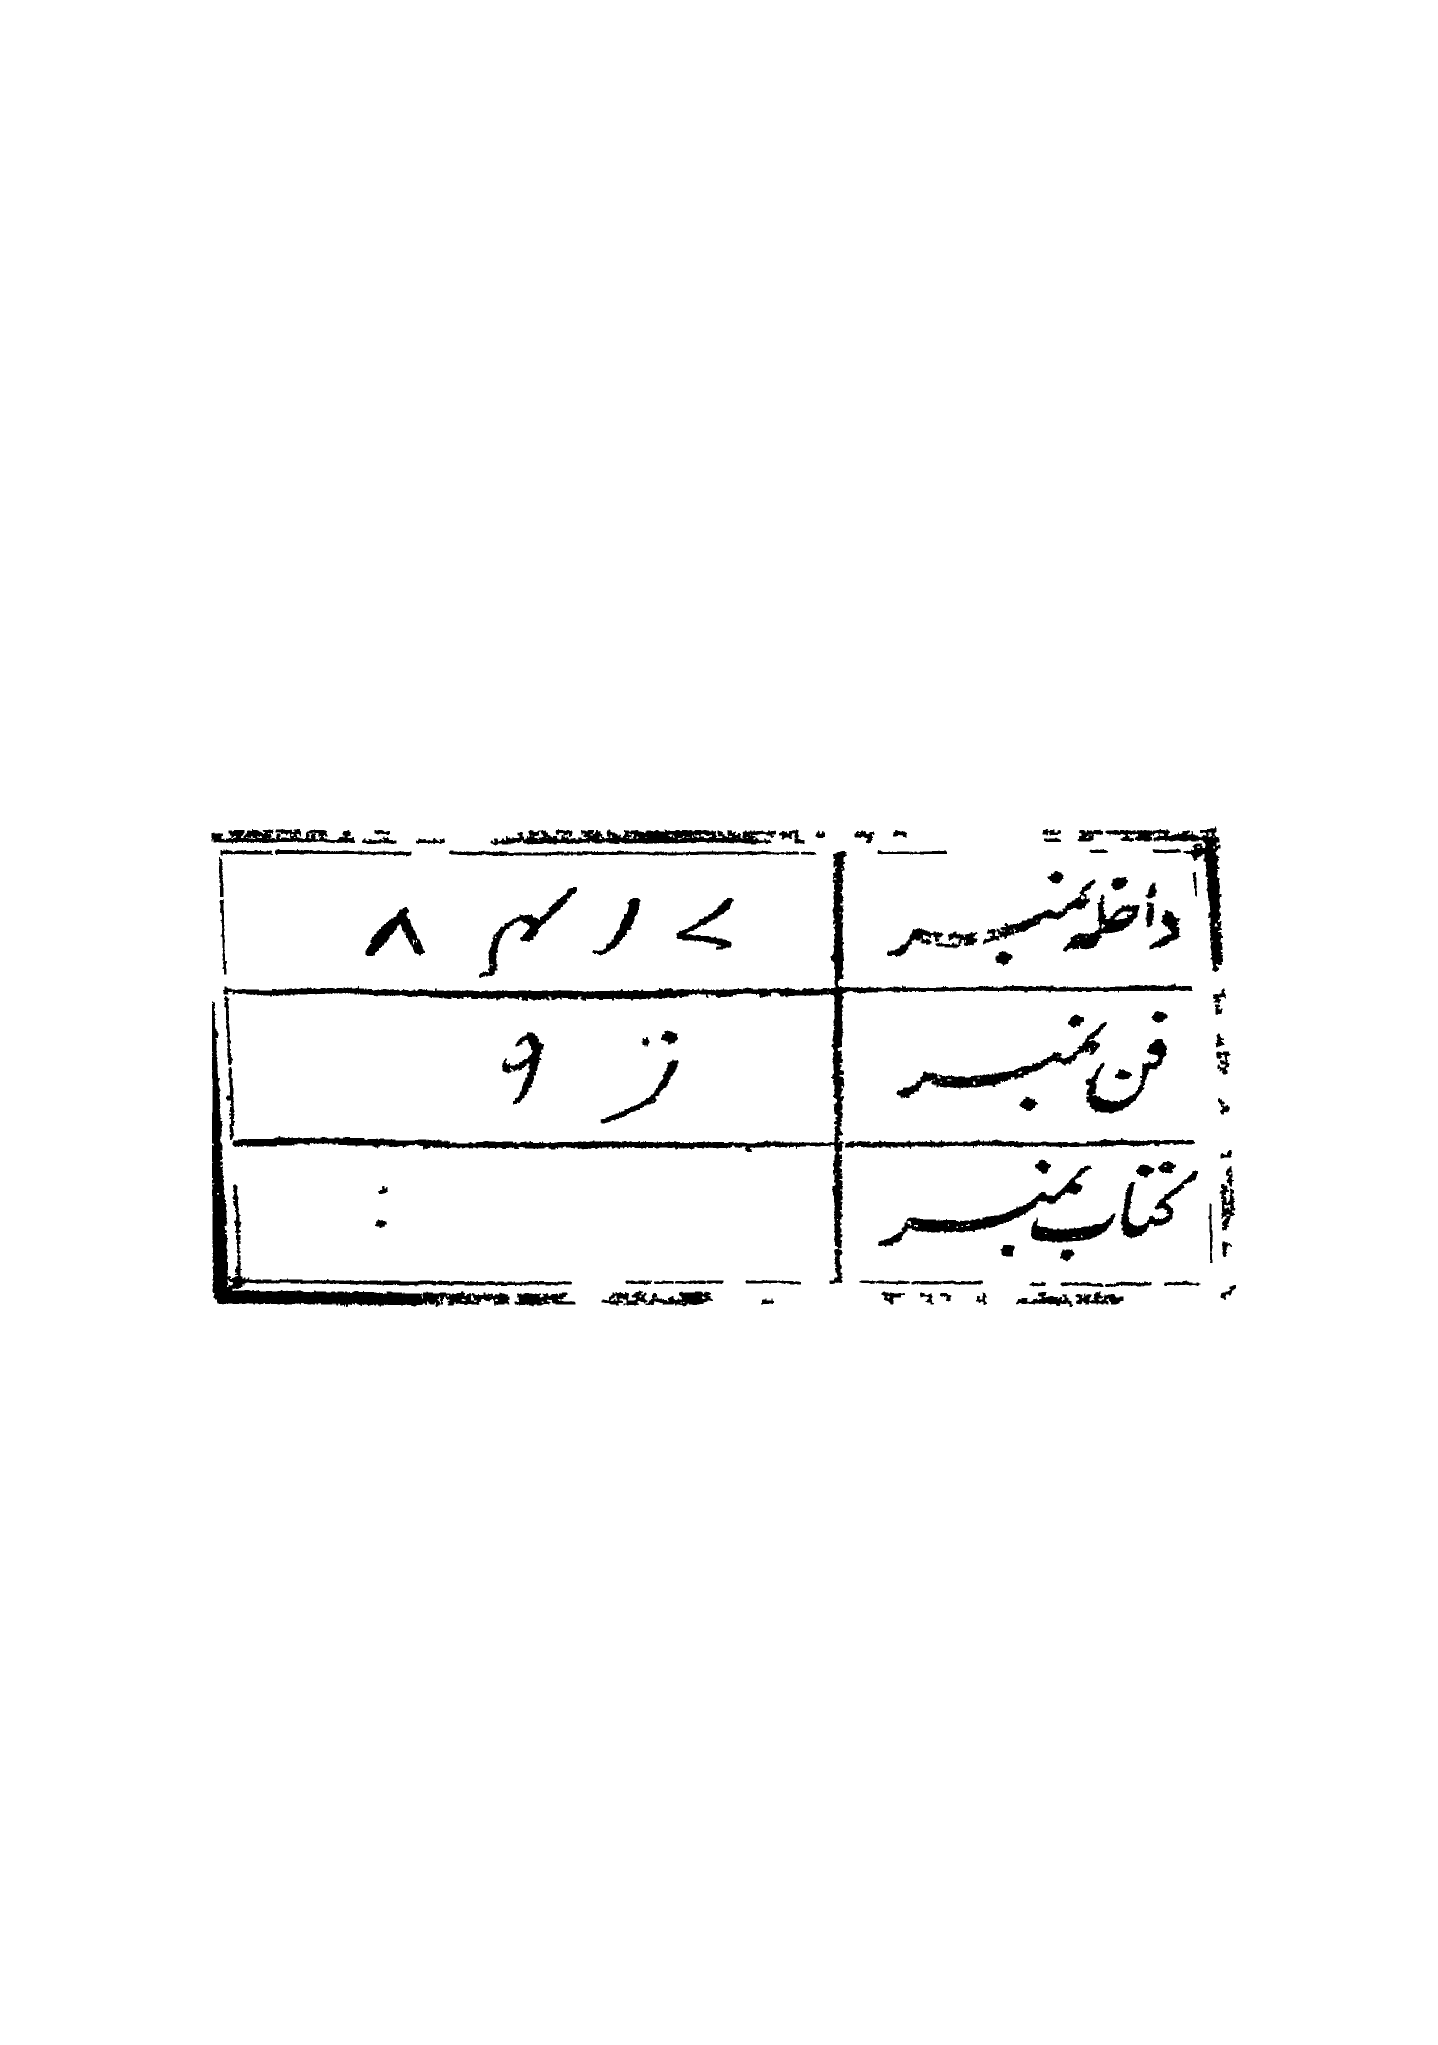 داخلہ نمبر ۸۴۱۷
فن نمبر
کتاب نمبر